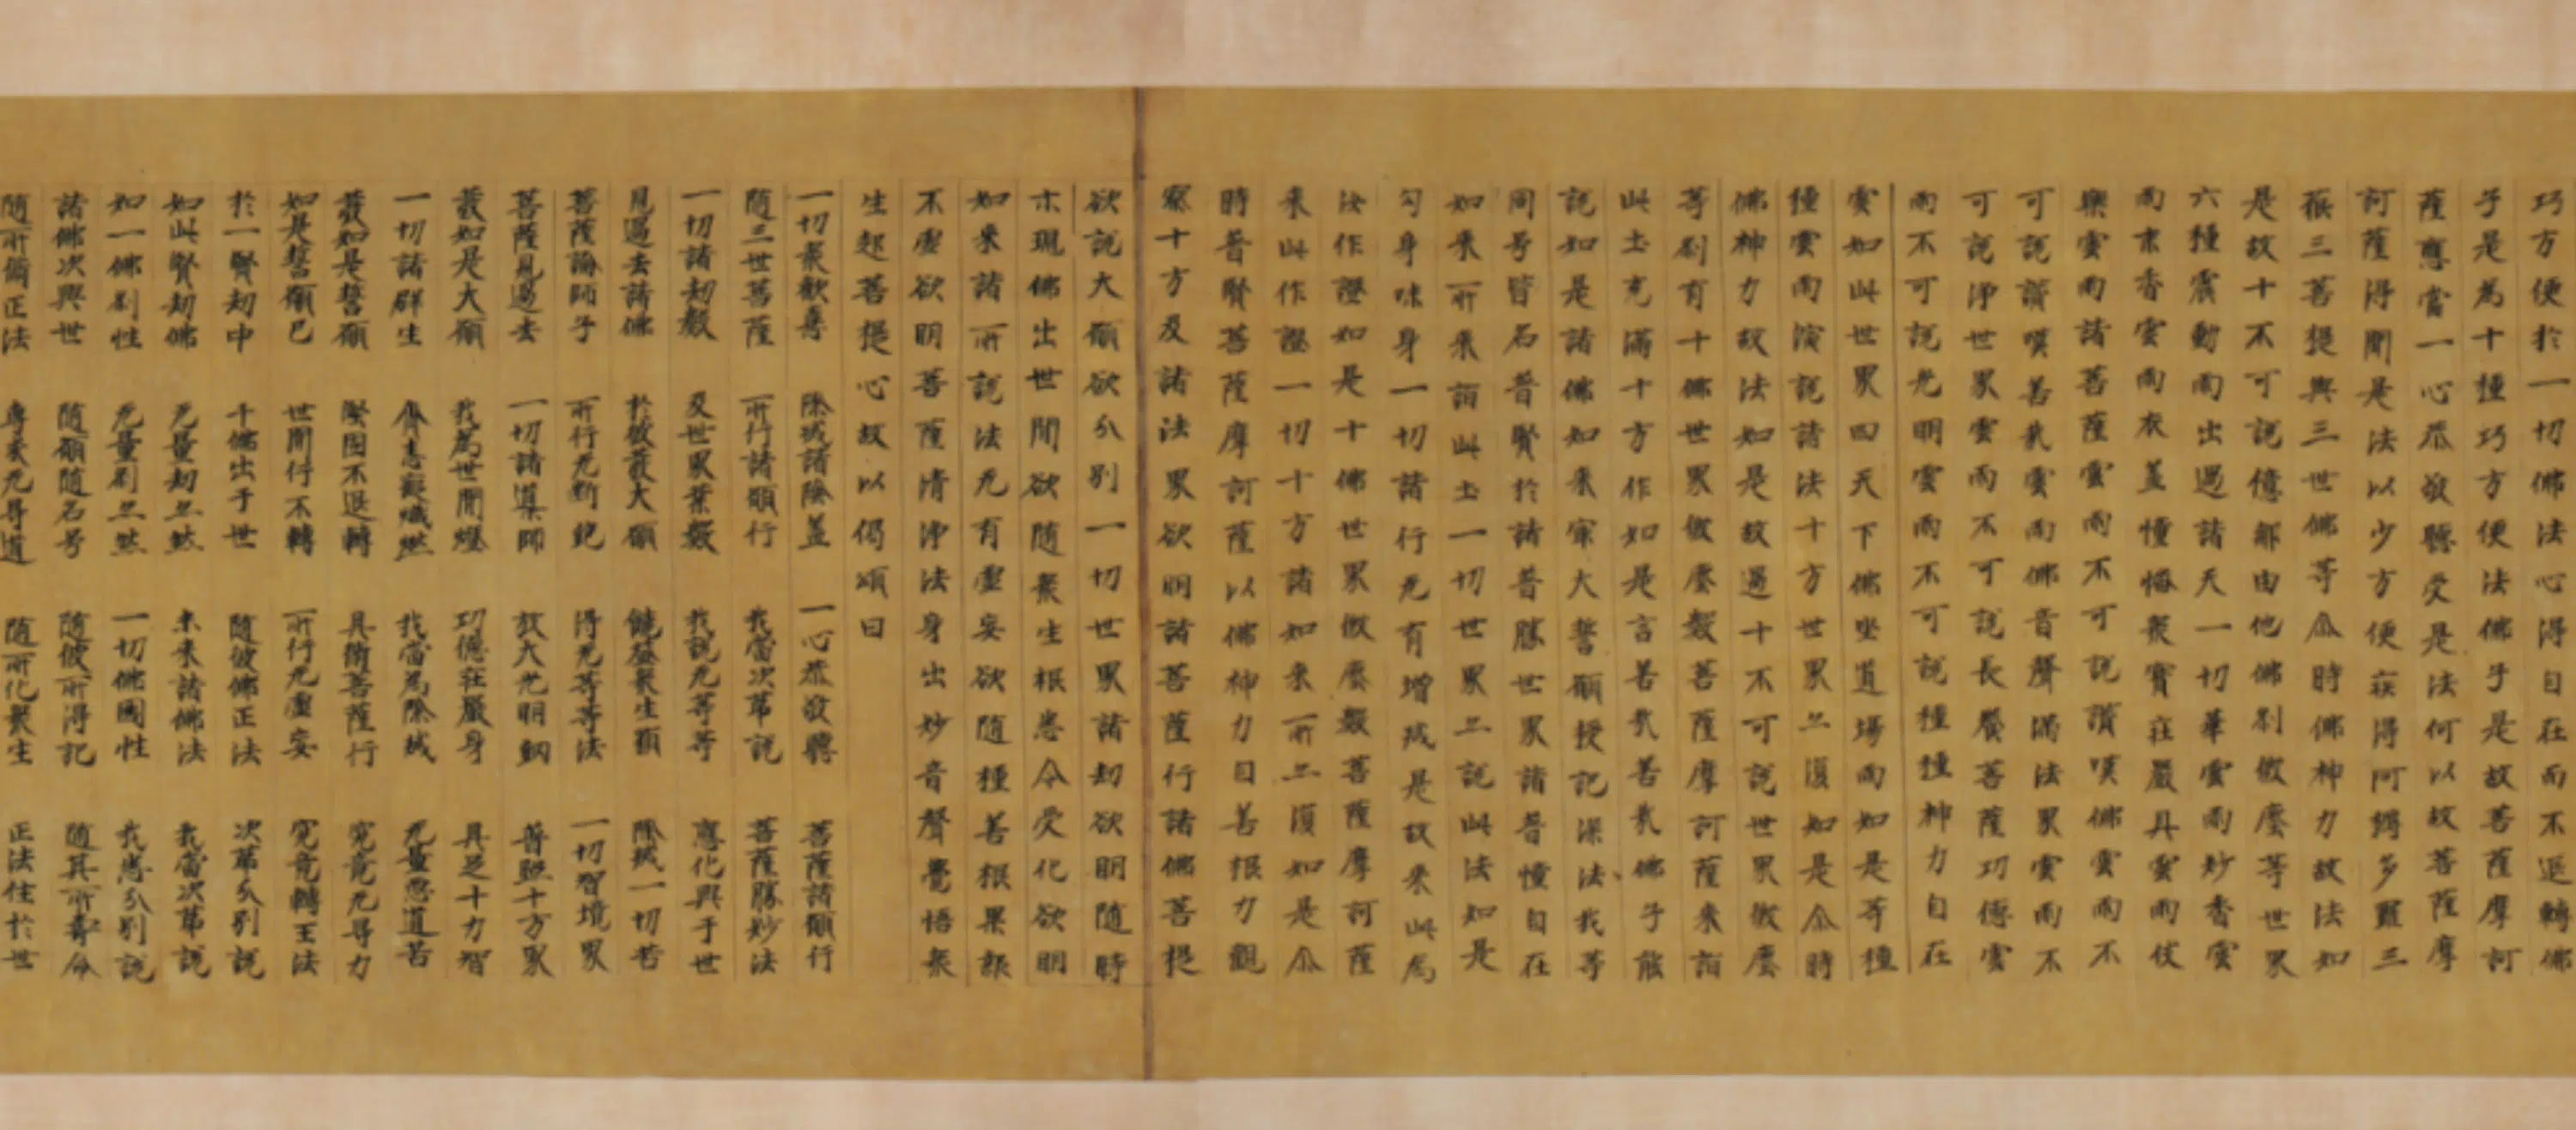 巧方便於一切佛法心得自在而不退轉佛
子是為十種巧方便法佛子是故菩薩摩訶
薩應當一心恭敬聽受是法何以故菩薩摩
訶薩得聞是法以少方便疾得阿耨多羅三
藐三菩提與三世佛等尒時佛神力故法如
是故十不可說億那由他佛刹微塵等世界
六種震動雨出過諸天一切華雲雨妙香雲
雨末香雲雨衣蓋幢幡衆寶莊嚴具雲雨伎
樂雲雨諸菩薩雲雨不可說讚嘆佛雲雨不
可說讚嘆善哉雲雨佛音聲滿法界雲雨不
可說淨世界雲雨不可說長養菩薩功德雲
雨不可說光明雲雨不可說種種神力自在
雲如此世界四天下佛坐道場雨如是等種
種雲雨演說諸法十方世界亦復如是尒時
佛神力故法如是故過十不可說世界微塵
等刹有十佛世界微塵數菩薩摩訶薩来詣
此土充滿十方作如是言善哉善哉佛子能
說如是諸佛如来寂大誓願授記深法我等
同号皆名普賢於諸普勝世界諸普幢自在
如来所来詣此土一切世界亦說此法如是
勾身味身一切諸行无有增減是故来此為
汝作證如是十佛世界微塵數菩薩摩訶薩
来此作證一切十方諸如来所亦復如是尒
時普賢菩薩摩訶薩以佛神力自善根力觀
察十方及諸法界欲明諸菩薩行諸佛菩提
欲說大願欲分別一切世界諸劫欲明隨時
示現佛出世間欲隨衆生根悉令受化欲明
如来諸所說法无有虛妄欲隨種善根果報
不虛欲明菩薩清淨法身出妙音聲覺悟衆
生起菩提心故以偈頌曰
一切衆歡喜 除滅諸陰蓋 一心恭敬聽 菩薩諸願行
隨三世菩薩 所行諸願行 我當次第說 菩薩勝妙法
一切諸劫數 及世界業數 我說无等等 應化興于世
見過去諸佛 於彼發大願 饒益衆生類 除滅一切苦
菩薩論師子 所行无斷絕 得无等等法 一切智境界
菩薩見過去 一切諸導師 放大光明網 普照十方界
發如是大願 我為世間燈 功德莊嚴身 具足十力智
一切諸群生 貪恚癡熾燃 我當為除滅 无量惡道苦
發如是誓願 堅固不退轉 具脩菩薩行 究竟无㝵力
如是誓願已 世間行不轉 所行无虛妄 究竟轉王法
於一賢劫中 千佛出于世 隨彼佛正法 次第分別說
如此賢劫佛 无量劫亦然 未来諸佛法 我當次第說
如一佛刹性 无量刹亦然 一切佛國性 我悉分別說
諸佛次興世 隨願隨名号 隨彼所得記 隨其所壽命
隨所脩正法 專求无㝵道 隨所化衆生 正法住於世